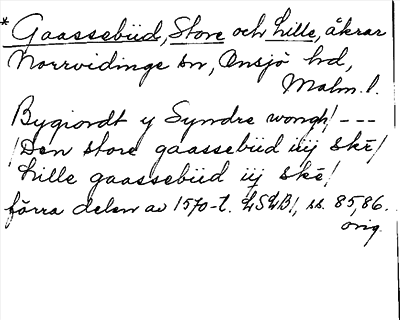 * Gaassebüd, Store och Lille, åkrar
Norrvidinge sn, Onsjö hd,
Malm. l.
Bygiordt y Syndre wongh/ ---
/Den store gaassebüd iiij skē/
Lille gaassebüd iij skē/
förra delen av 1570-t. LSLB1, ss. 85, 86.
orig.